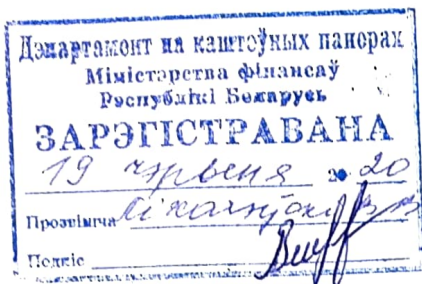 Дэпартамент па каштоўных паперах
Міністэрства фінансаў
Рэспублікі Беларусь
ЗАРЭГІСТРАВАНА
19 чэрвеня 20 20
Прозвішча
Подпіс